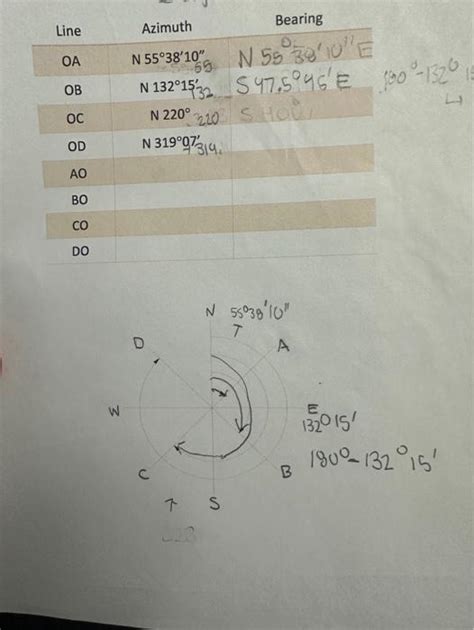 Line Azimuth Bearing
OA N 55°38'10" N 55°38'10" E
OB N 132°15' 132 S 47.5°45' E 180°-132°
OC N 220° 220 S 40°
OD N 319°07'
AO
BO
CO
DO
N 55°38'10"
D A
W E
132°15'
C B 180°-132°15'
S